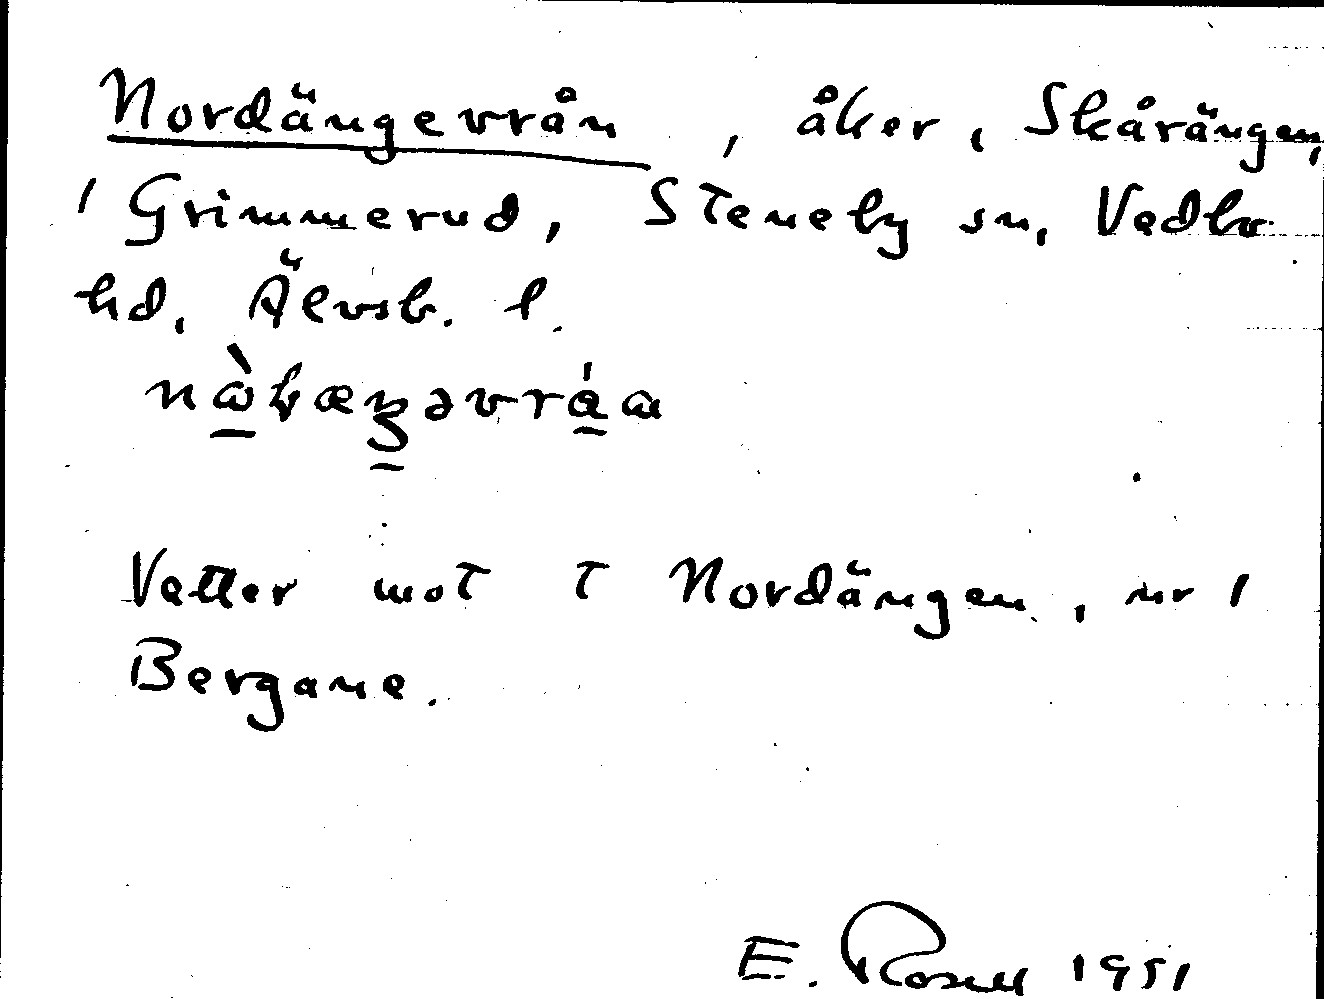 Nordängevrån, åker, Skårängen,
1 Grimmerud, Steneby sn, Vedbo
hd, Älvsb. l.
Vetter mot T Nordängen, nr 1
Bergane.
E. Rosell 1951